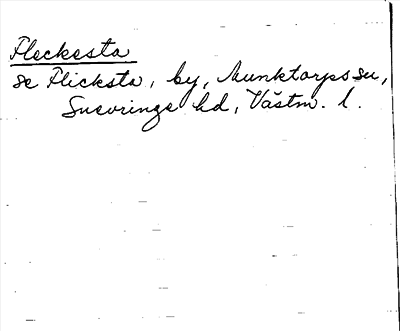 Fleckesta
se Flicksta, by, Munktorps sn,
Snevringe hd, Västm. l.